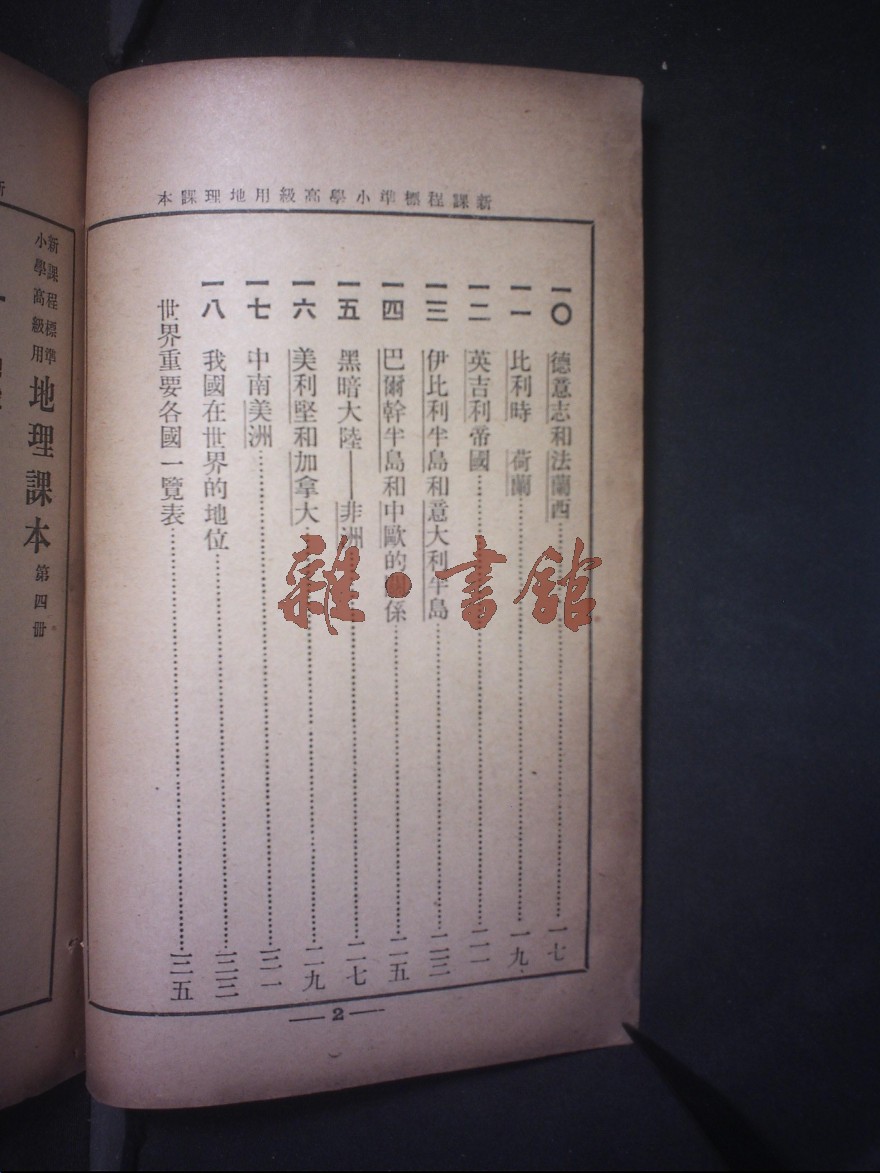 新課程標準小學高級用地理課本
一〇 德意志和法蘭西……一七
一一 比利時 荷蘭……一九
一二 英吉利帝國……二一
一三 伊比利半島和意大利半島……二三
一四 巴爾幹半島和中歐的關係……二五
一五 黑暗大陸——非洲……二七
一六 美利堅和加拿大……二九
一七 中南美洲……三一
一八 我國在世界的地位……三三
世界重要各國一覽表……三五
—2—
新課程標準
小學高級用
地理課本 第四冊
雜·書館